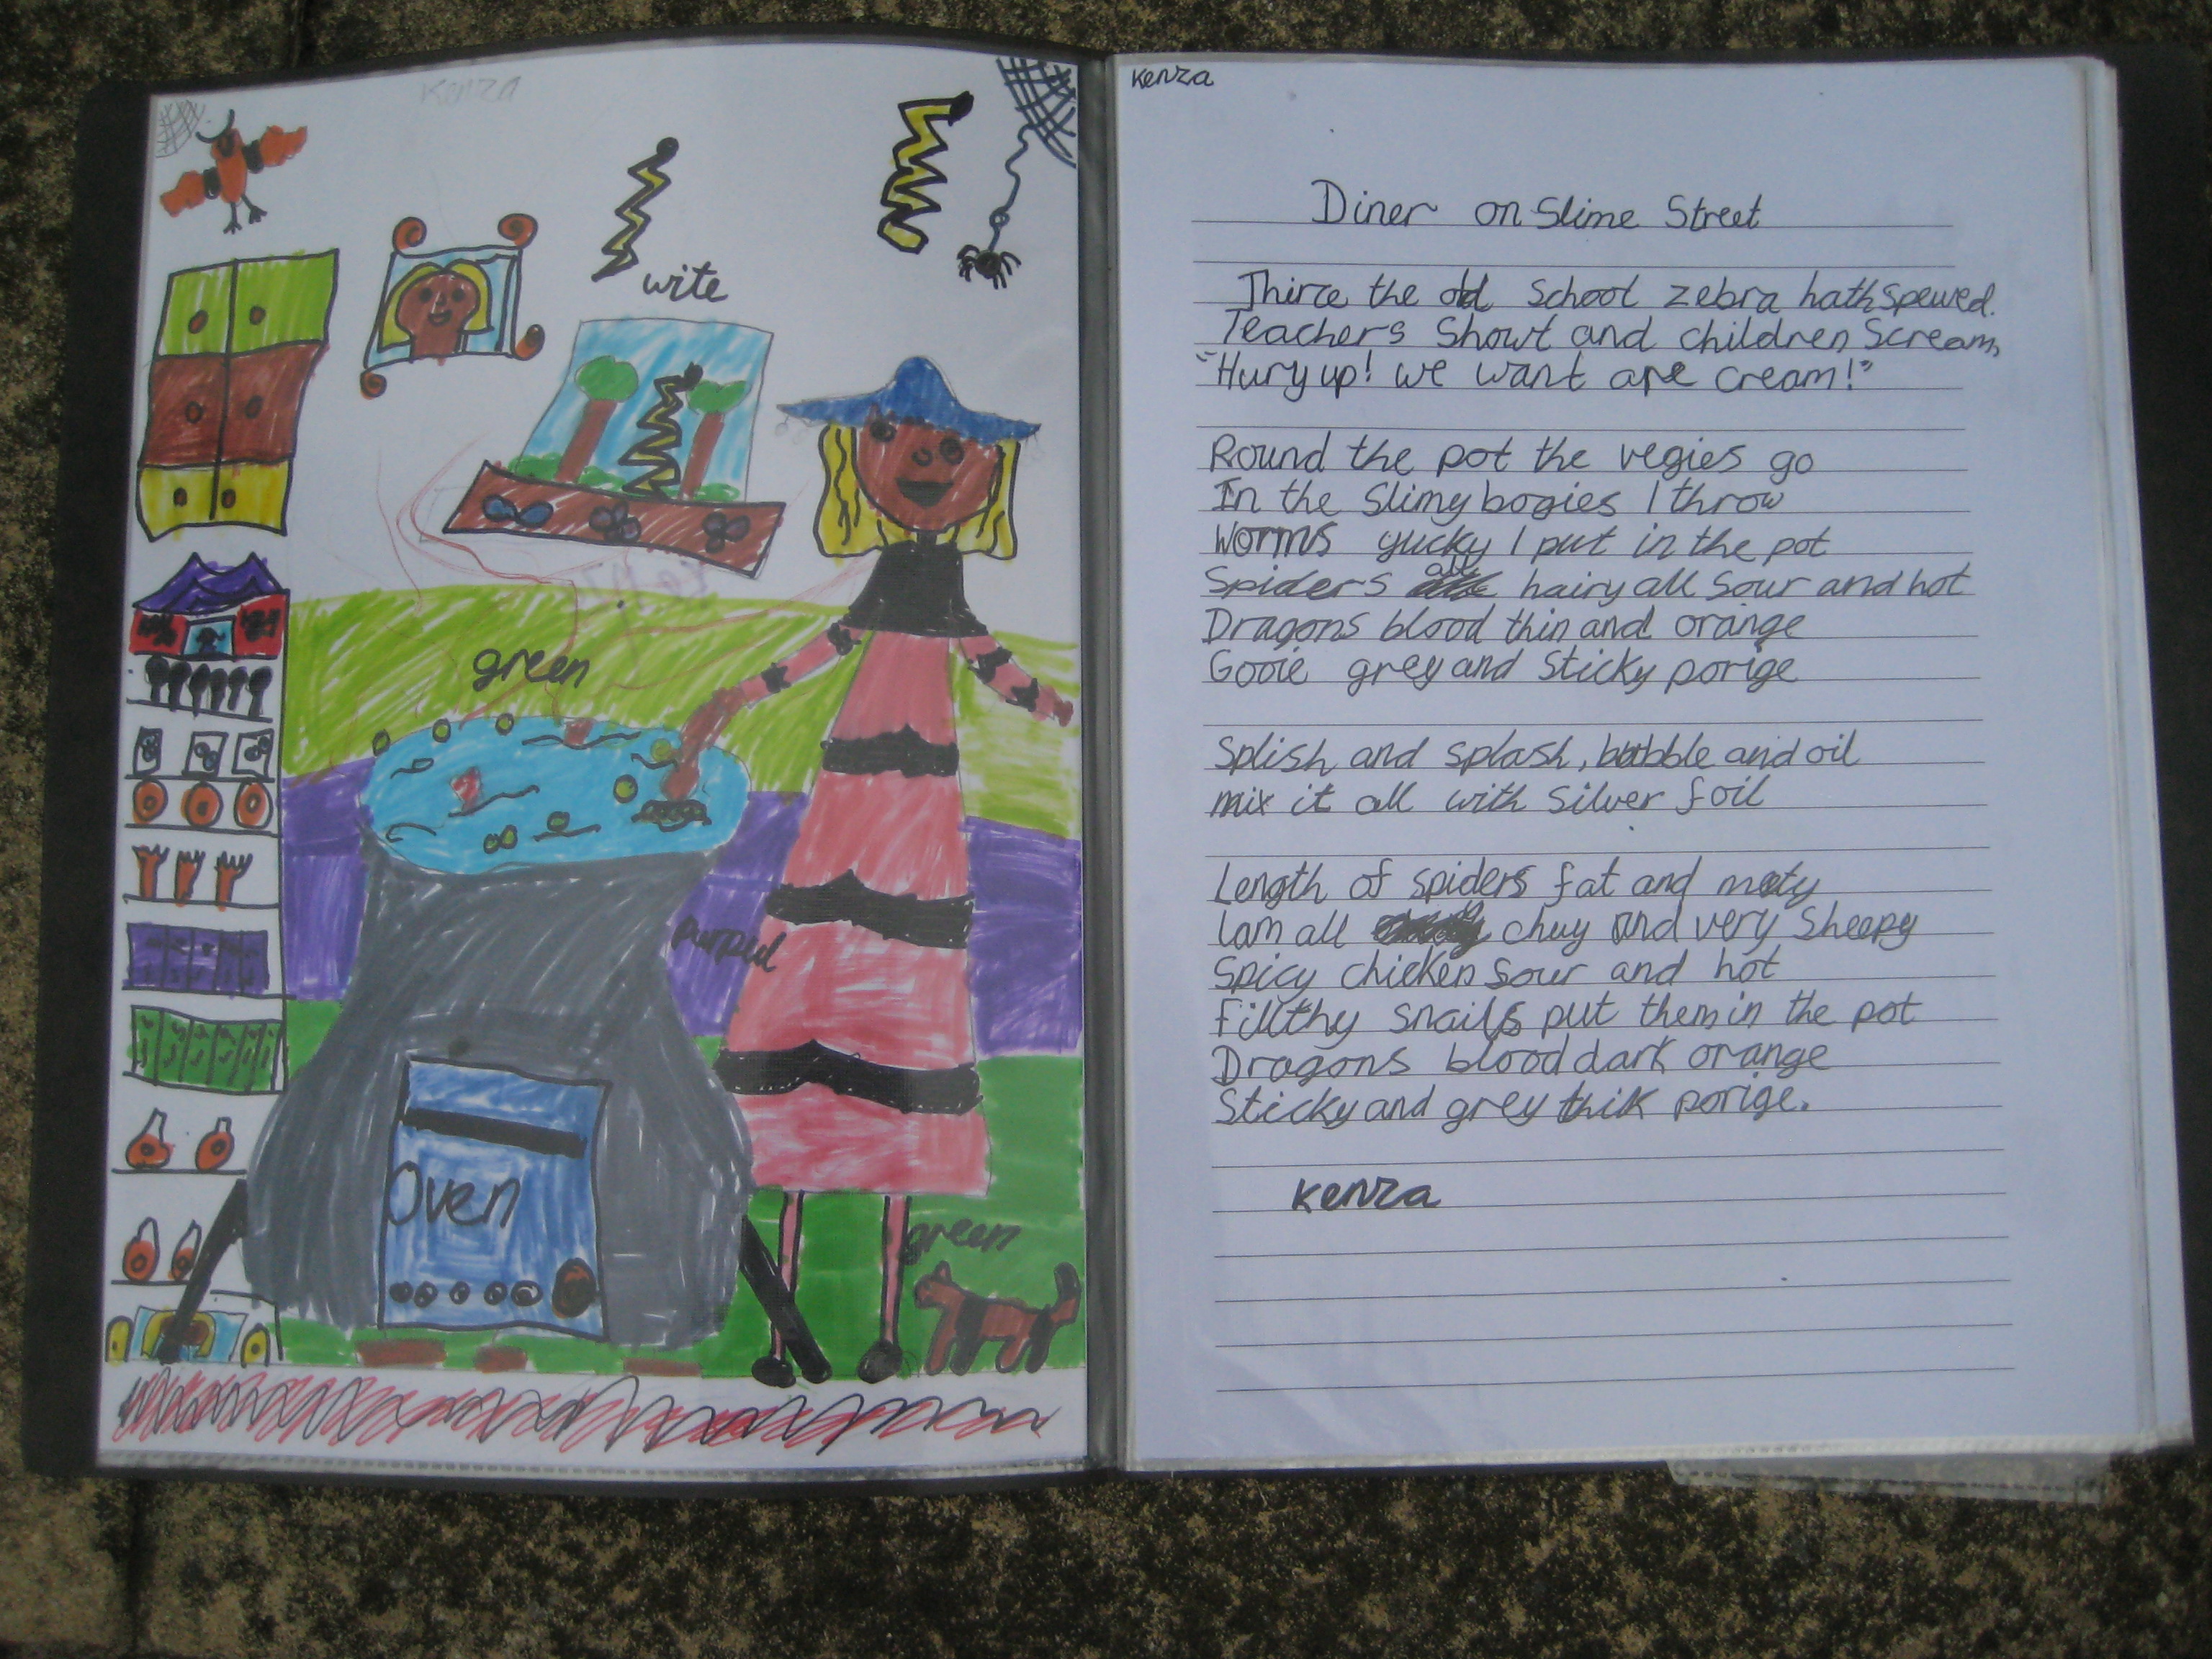 Kenza
wite
green
purpul
Oven
green
Kenza
Diner on Slime Street
Thirce the old School zebra hath spewed.
Teachers Showt and children Scream,
"Hury up! we want are cream!"
Round the pot the vegies go
In the Slimy bogies I throw
Worms yucky I put in the pot
Spiders all hairy all Sour and hot
Dragons blood thin and orange
Gooie grey and Sticky porige
Splish and splash, bubble and oil
mix it all with Silver foil
Length of spiders fat and mety
I am all chuy and very Sheepy
Spicy chicken Sour and hot
Fillthy snails put them in the pot
Dragons blood dark orange
Sticky and grey thik porige.
Kenza